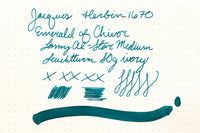 Jacques Herbin 1670
Emerald of Chivor
Lamy Al-Star Medium
Leuchtturm 80g ivory
x x x x x